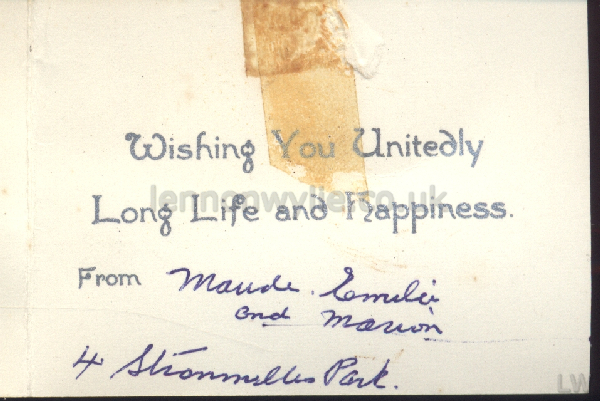 Wishing You Unitedly
lennonwylie.co.uk
Long Life and Happiness.
From Maude. Emilie
and Marion
4 Stranmillis Park.
LW